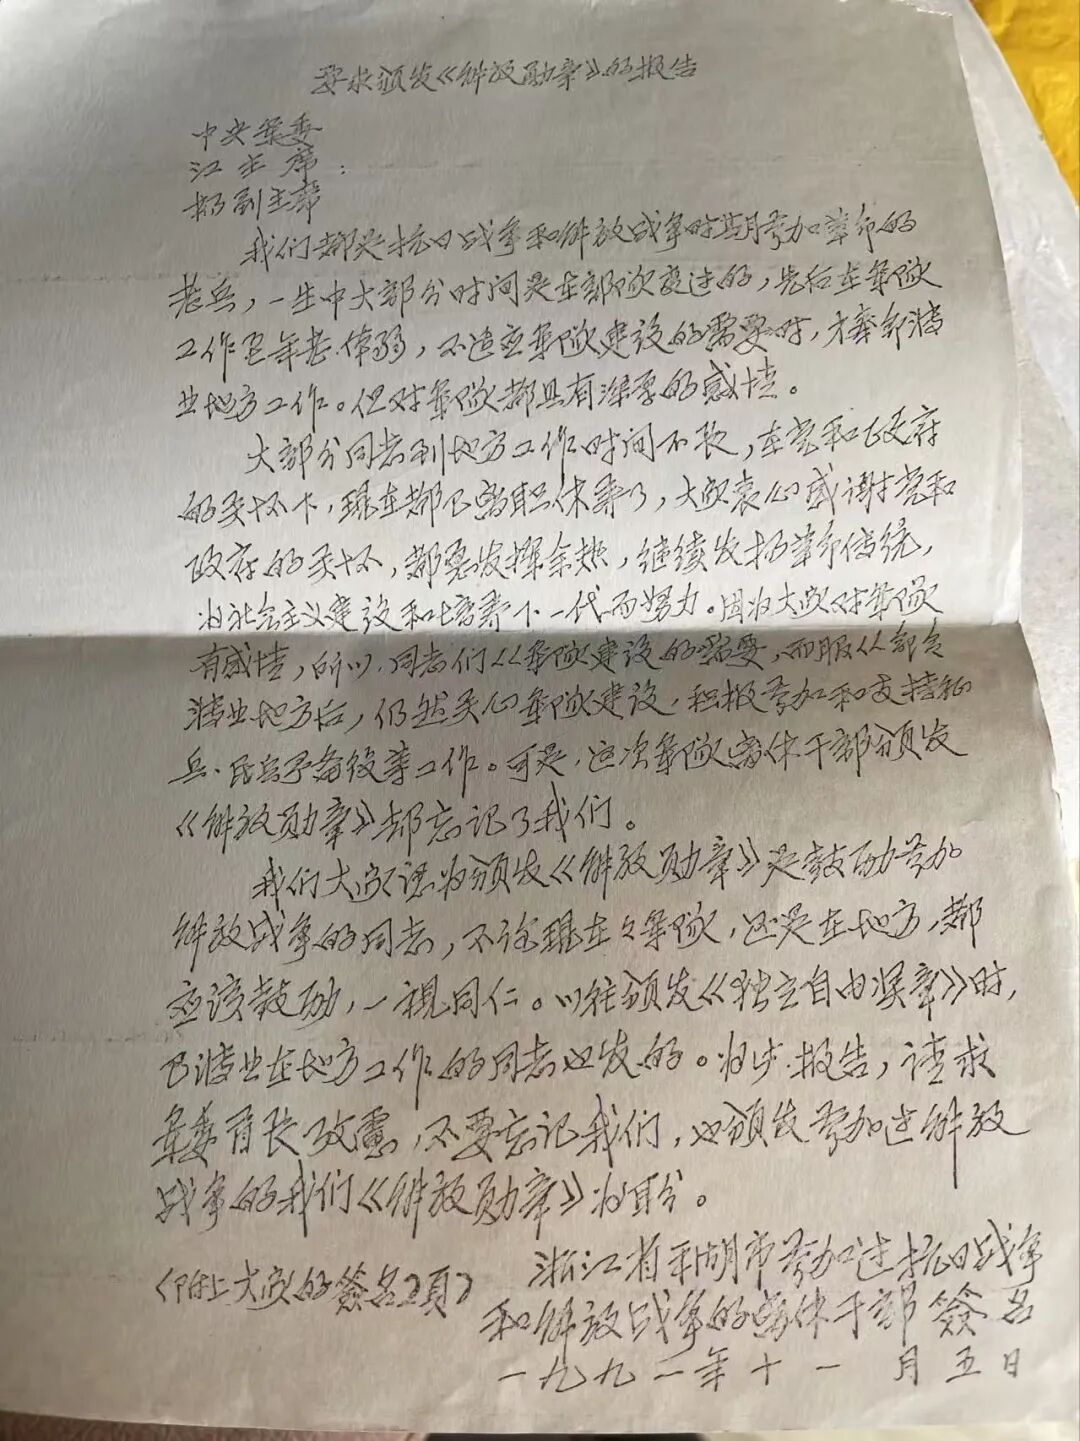 要求颁发《解放勋章》的报告
中央军委
江主席：
杨副主席
我们都是抗日战争和解放战争时期参加革命的
老兵，一生中大部分时间是在部队度过的，先后在军队
工作至年老体弱，不适应军队建设的需要时，才奉命转
业地方工作。但对军队都具有深厚的感情。
大部分同志到地方工作时间不长，在党和政府
的关怀下，现在都已离职休养了，大家衷心感谢党和
政府的关怀，都愿发挥余热，继续发扬革命传统，
为社会主义建设和培养下一代而努力。因为大家对军队
有感情，所以，同志们从军队建设的需要，而服从命令
转业地方后，仍然关心军队建设，积极参加和支持征
兵、民兵予备役等工作。可是，这次军队离休干部颁发
《解放勋章》却忘记了我们。
我们大家认为颁发《解放勋章》是鼓励参加
解放战争的同志，不论现在军队，还是在地方，都
应该鼓励，一视同仁。以往颁发《独立自由奖章》时，
已转业在地方工作的同志也发的。为此报告，请求
军委首长考虑，不要忘记我们，也颁发参加过解放
战争的我们《解放勋章》为盼。
（附上大家的签名2页）
浙江省平湖市参加过抗日战争
和解放战争的离休干部签名
一九九一年十一月五日